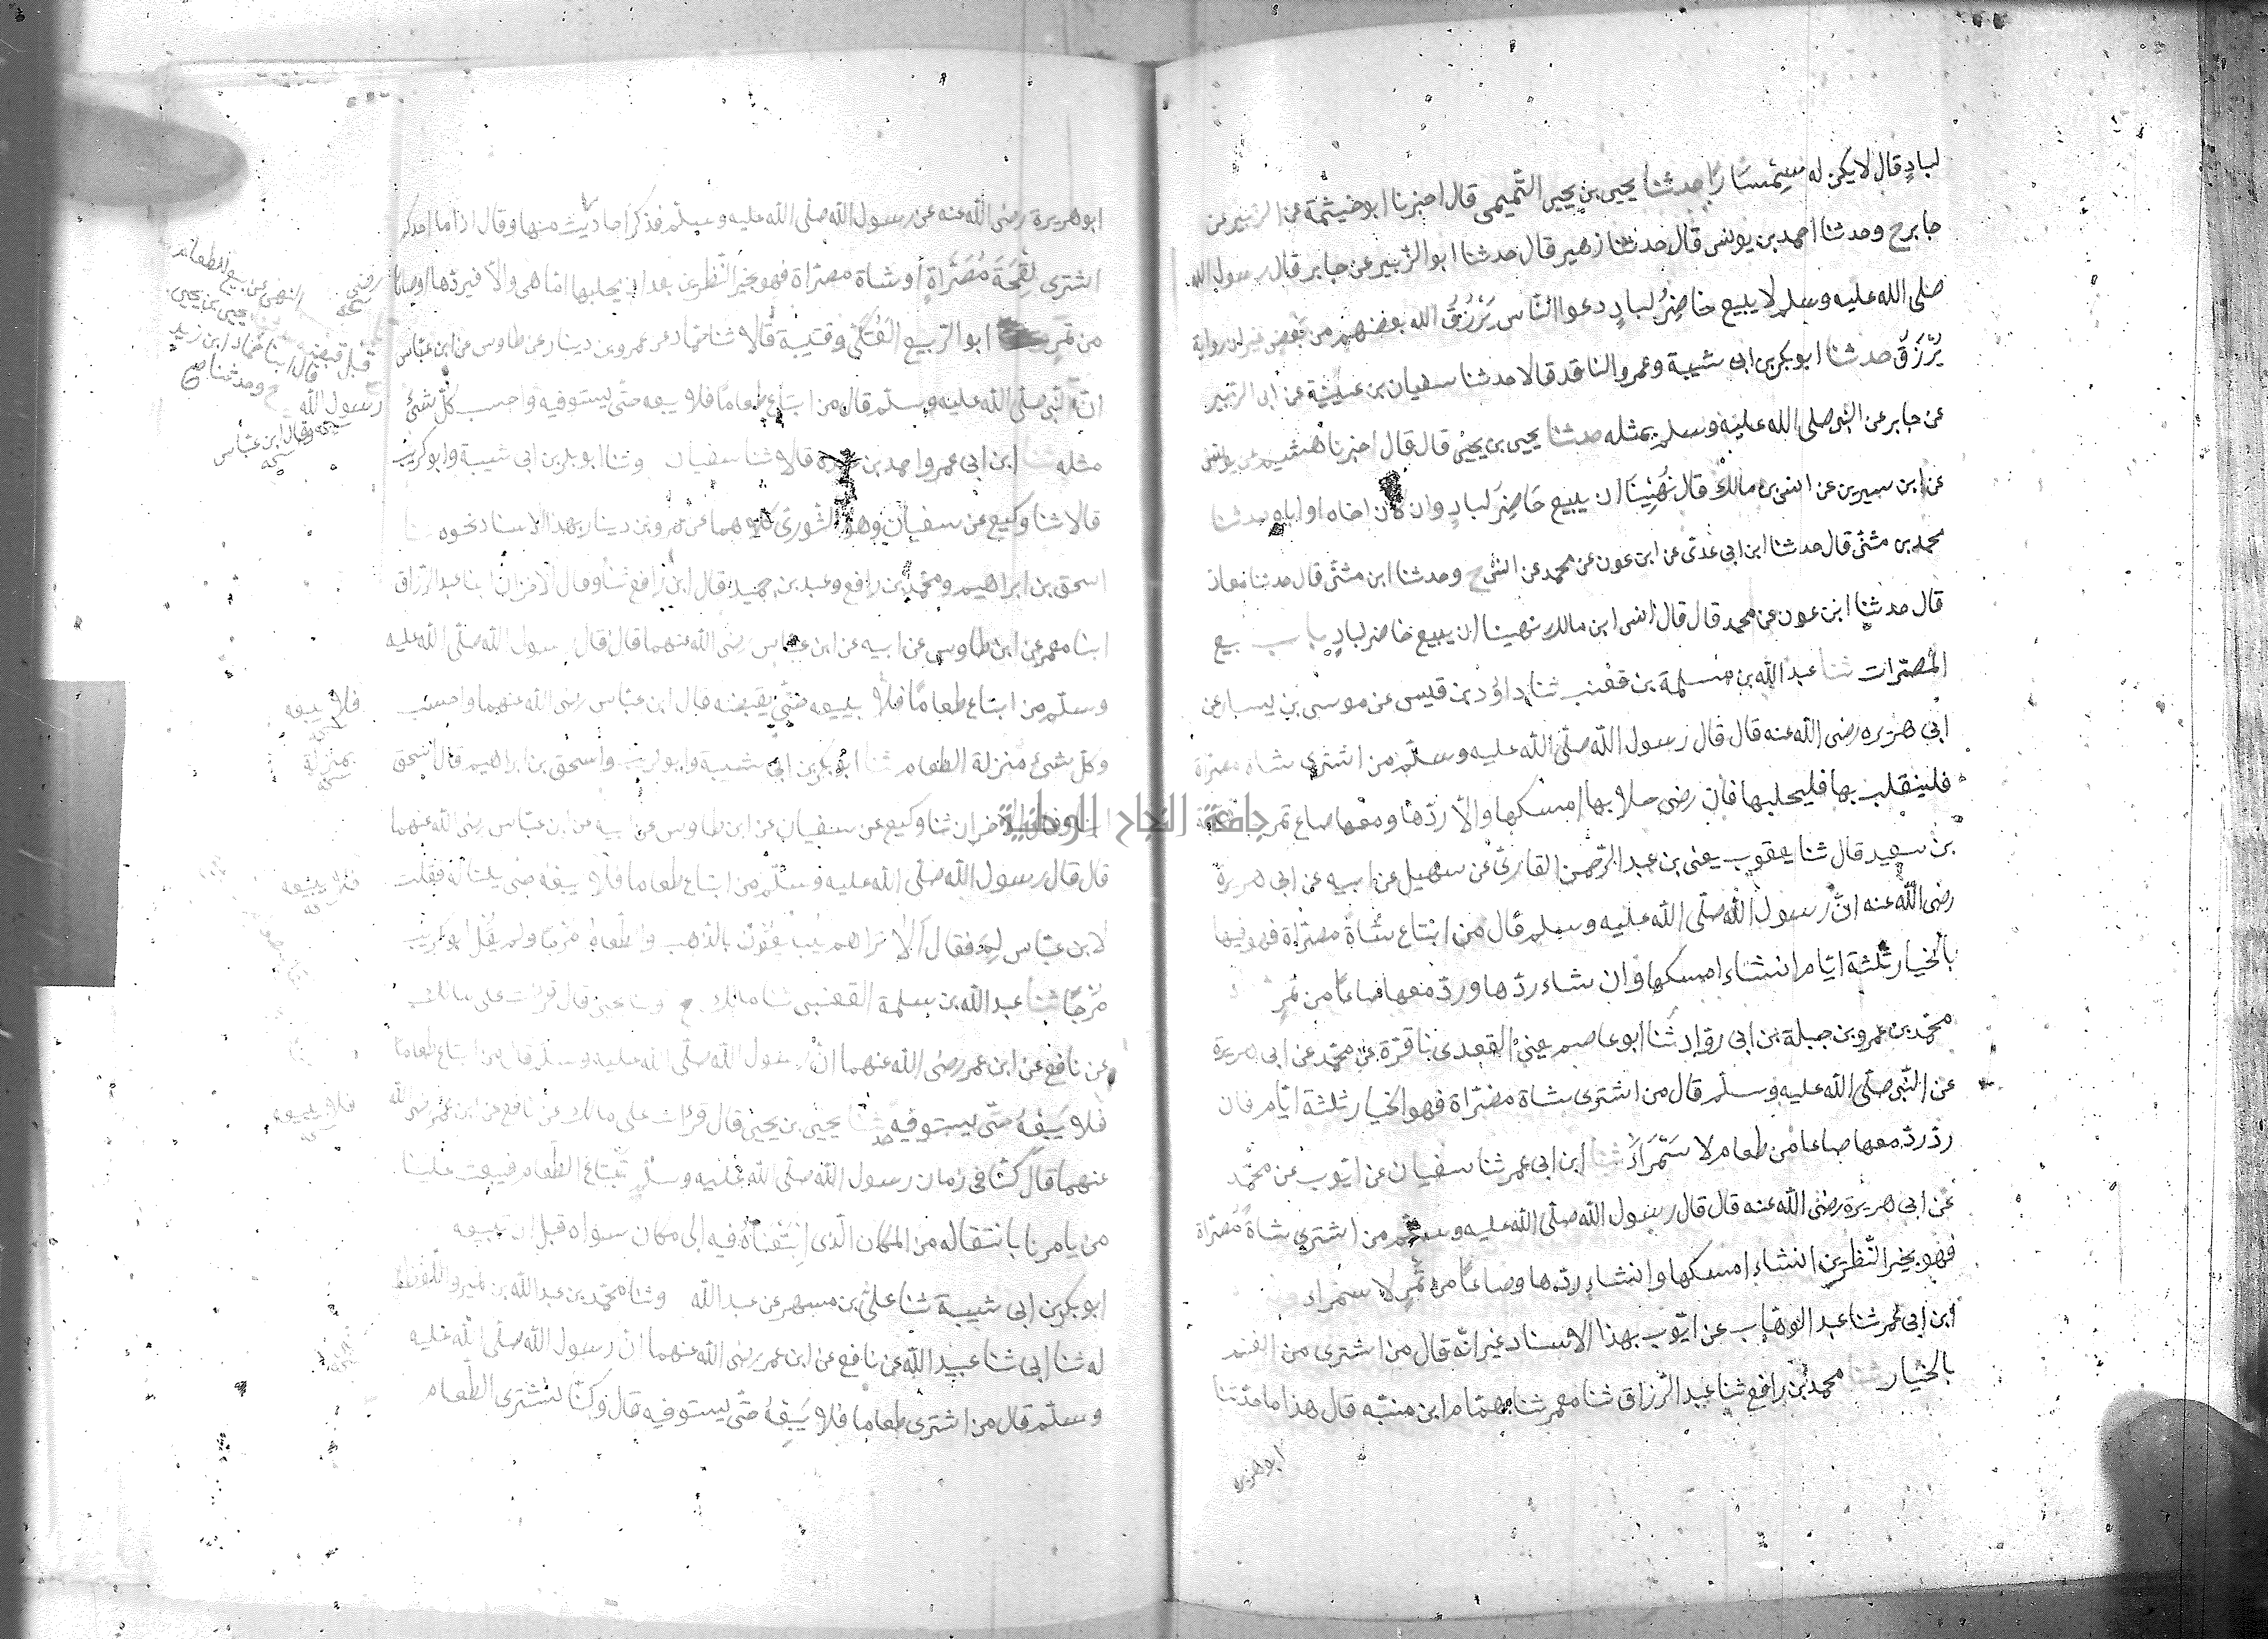 لبادٍ قال لا يكن له سِمْسَارًا حدثنا يحيى بن يحيى التّميمى قال اخبرنا ابو خيثمة عن الزبير عن
جابر ح وحدثنا احمد بن يونس قال حدثنا زهير قال حدثنا ابو الزّبير عن جابر قال رسول الله
صلى الله عليه وسلم لا يبيع حَاضِرٌ لبادٍ دعوا النّاس يَرْزُقُ الله بعضهم من بعض غير ان رواية
يُرْزَقُ حدثنا ابو بكر بن ابى شيبة وعمرو الناقد قالا حدثنا سفيان بن عيينة عن ابى الزّبير
عن جابر عن النبى صلى الله عليه وسلم بمثله حدثنا يحيى بن يحيى قال قال اخبرنا هشيم عن يونس
عن ابن سيرين عن انس بن مالك قال نُهِينَا ان يبيع حَاضِرٌ لبادٍ وان كان اخاه او اباه حدثنا
محمد بن مثنّى قال حدثنا ابن ابى عدىّ عن ابن عون عن محمد عن انس ح وحدثنا ابن مثنّى قال حدثنا معاذ
قال حدثنا ابن عون عن محمد قال قال انس ابن مالك نهينا ان يبيع حاضر لبادٍ باب بيع
المُصَرّات ثنا عبد الله بن مسلمة بن قعنب ثنا داؤد بن قيس عن موسى بن يسار عن
ابى هريره رضى الله عنه قال قال رسول الله صلّى الله عليه وسلّم من اشترى شاة مصرّاة
فلينقلب بها فليحلبها فان رضى حلابها امسكها والّا ردّها ومعها صاع تمر
بن سعيد قال ثنا يعقوب يعنى بن عبد الرّحمن القارىّ عن سهيل عن ابيه عن ابى هريرة
رضى الله عنه انّ رسول الله صلّى الله عليه وسلم قال من ابتاع شاةً مصرّاة فهو فيها
بالخيار ثلثة ايّام ان شاء امسكها وان شاء ردّها وردّ معها صاعًا من تمرٍ
محمّد بن عمرو بن جبلة بن ابى روّاد ثنا ابو عاصم يعنى القعدى نا قرّة عن محمّد عن ابى هريرة
عن النّبى صلّى الله عليه وسلّم قال من اشترى شاة مصرّاة فهو الخيار ثلثة ايّام فان
ردّ ردّ معها صاعا من طعام لا سَمْرَاءَ ثنا ابن ابى عمر ثنا سفيان عن ايّوب عن محمّد
عن ابى هريرة رضى الله عنه قال قال رسول الله صلّى الله عليه وسلّم من اشترى شاةً مُصَرّاة
فهو بخير النّظرين ان شاء امسكها وان شاء ردّها وصاعًا من تَمْرٍ لا سمراء
ابن ابى عمر ثنا عبد الوهّاب عن ايّوب بهذا الاسناد غير انّه قال من اشترى من الغنم
بالخيار ثنا محمد بن رافع ثنا عبد الرّزاق ثنا معمر ثنا همّام ابن منبّه قال هذا ما حدّثنا
ابو هريره
ابو هريرة رضى الله عنه عن رسول الله صلّى الله عليه وسلّم فذكر احاديث منها وقال اذا ما احدكم
اشترى لِقْحَةً مُصَرّاةٍ أو شاة مصرّاة فهو بخير النّظرين بعد ان يحلبها امّا هى والّا فليردّها وصاعًا
من تمرٍ ابو الرّبيع العَتَكىّ وقتيبة قالا ثنا حمّاد عن عمرو بن دينار عن طاوس عن ابن عبّاس
انّ النّبى صلّى الله عليه وسلّم قال من ابتاع طعامًا فلا يبعه حتّى يستوفيه واحسب كلّ شئ
مثله ثنا ابن ابى عمر واحمد بن عبدة قالا ثنا سفيان وثنا ابو بكر بن ابى شيبة وابو كريب
قالا ثنا وكيع عن سفيان وهو الثّورىّ كلاهما عن عمرو بن دينار بهذا الاسناد نحوه
اسحق بن ابراهيم ومحمّد بن رافع وعبد بن حميد قال ابن رافع ثنا وقال الآخران ابنا عبد الرّزاق
ابنا معمر عن ابن طاوس عن ابيه عن ابن عباس رضى الله عنهما قال قال رسول الله صلّى الله عليه
وسلّم من ابتاع طعامًا فلا يبيعه حتّى يقبضه قال ابن عبّاس رضى الله عنهما واحسب
وكلّ شئ منزلة الطعام ثنا ابو بكر بن ابى شيبة وابو كريب واسحق بن ابراهيم قال اسحق
وقال الآخران ثنا وكيع عن سفيان عن ابن طاوس عن ابيه عن ابن عبّاس رضى الله عنهما
قال قال رسول الله صلّى الله عليه وسلّم من ابتاع طعاما فلا يبعه حتى يكتاله فقلت
لابن عبّاس لِمَ فقال اَلَا تراهم يتبايعون بالذّهب والطّعام مُرجًا ولم يقل ابو كريب
مُرْجًا ثنا عبد الله بن مسلمة القعنبى ثنا مالك ح وثنا يحيى قال قرات على مالك
عن نافع عن ابن عمر رضى الله عنهما انّ رسول الله صلّى الله عليه وسلّم قال من ابتاع طعاما
فلا يَبِعْهُ حتّى يستوفيه ثنا يحيى بن يحيى قال قرات على مالك عن نافع عن ابن عمر رضى الله
عنهما قال كنّا فى زمان رسول الله صلّى الله عليه وسلّم نبتاع الطّعام فيبعث علينا
من يامرنا بانتقاله من المكان الّذى ابْتَعْنَاهُ فيه الى مكان سواه قبل ان نبيعه
ابو بكر بن ابى شيبة ثنا علىّ بن مسهر عن عبد الله وثنا محمّد بن عبد الله بن نمير واللّفظ
له ثنا ابى ثنا عبيد الله عن نافع عن ابن عمر رضى الله عنهما انّ رسول الله صلّى الله عليه
وسلّم قال من اشترى طعاما فلا يَبِعْهُ حتّى يستوفيه قال وكنّا نشترى الطّعام
النهى عن بيع الطعام
قبل قبضه
يحيى بن يحيى
قال ابنا حمّاد ابن زيد
ح وحدثنا
رسول الله
وقال ابن عبّاس
فلا يبعه
بمنزلة
فلا يبيعه
فلا يبيعه
جامعة النجاح الوطنية